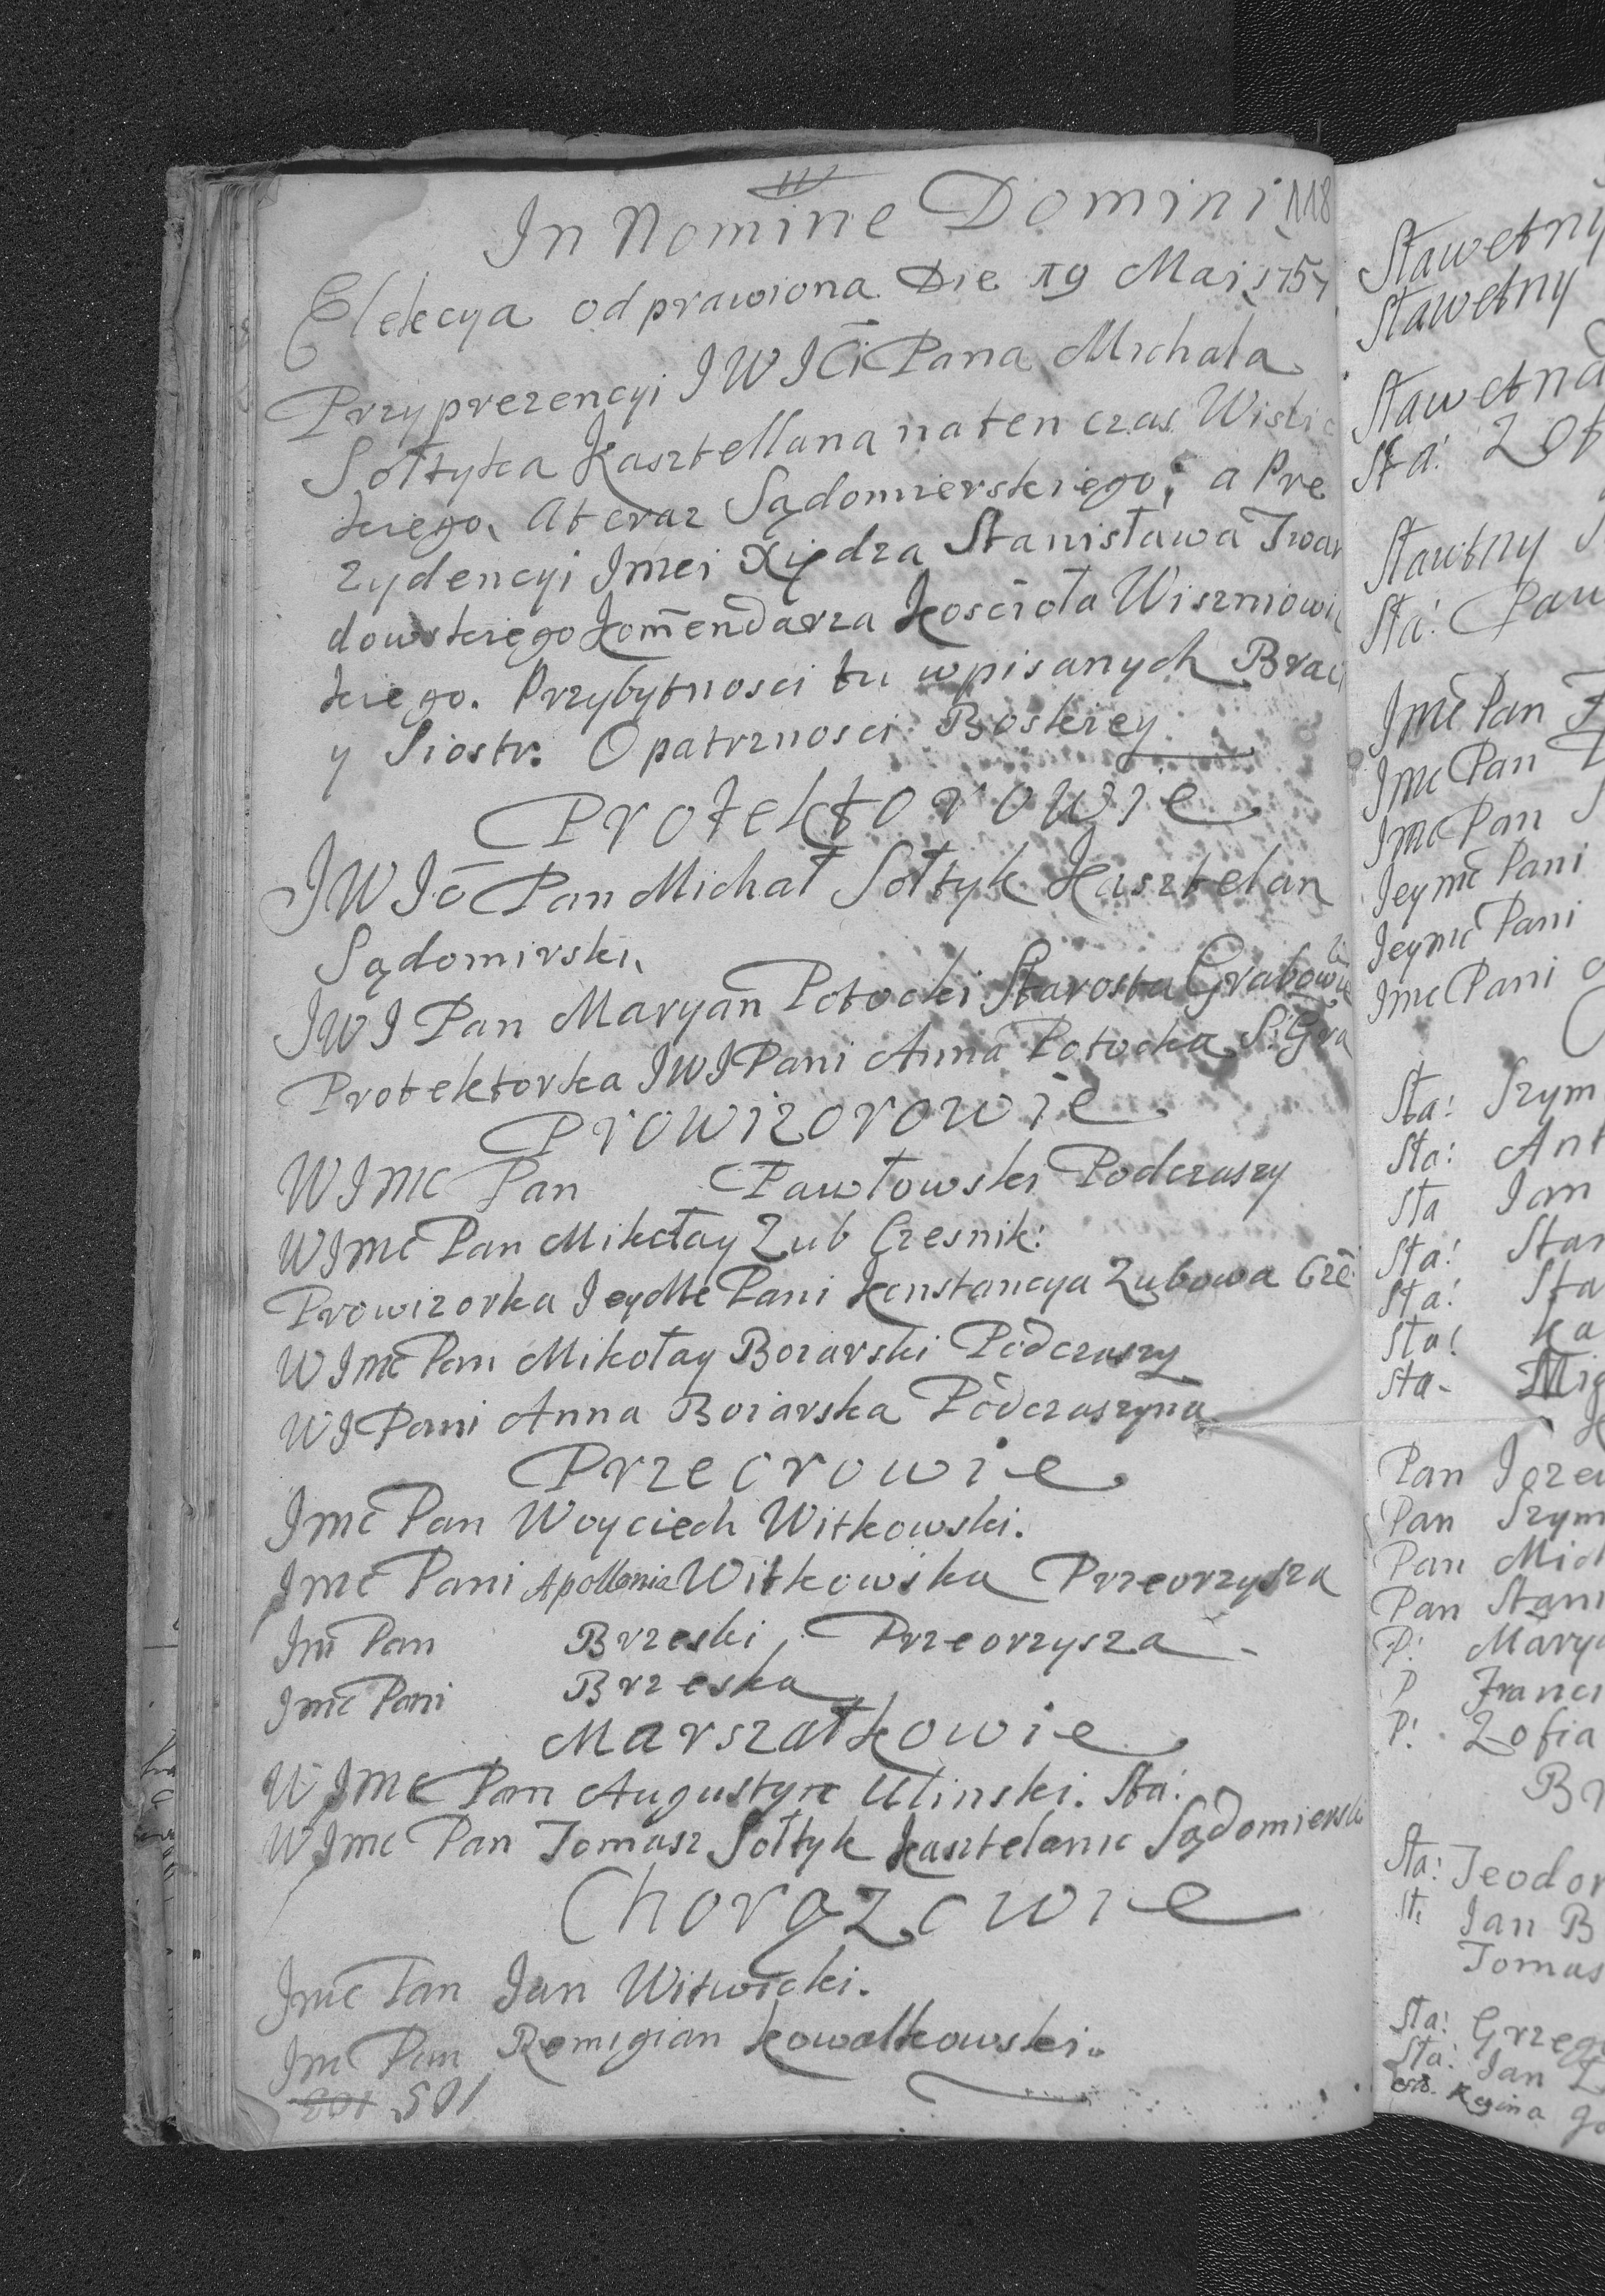 118
In Nomine Domini
Elekcya odprawiona Die 19 Maj 1757
Przy prezencyi JWJCi Pana Michała
Sołtyka Kasztellana naten czas Wislic
kiego, a teraz Sądomierskiego, a Pre
zydencyi Jmci Xiędza Stanisława Twar
dowskiego Komendarza Kościoła Wiszniowi
kiego. Przybytnosci tu wpisanych Braci
y Siostr. Opatrznosci Boskiey
Protektorowie
JWJC Pan Michał Sołtyk Kasztelan
Sądomirski,
JWJ Pan Maryan Potocki Starosta Grabowie
Protektorka JWJ Pani Anna Potocka S. Gra
Prowizorowie
WJMC Pan Pawłowski Podczaszy
WJmc Pan Mikołay Zub Czesnik:
Prowizorka JeyMc Pani Konstancya Zubowa Cze
WJmc Pan Mikołay Boiarski Podczaszy
WJ Pani Anna Boiarska Podczaszyna
Przeorowie
Jmc Pan Woyciech Witkowski.
Jmc Pani Apollonia Witkowska Przeorzysza
Jm Pan Brzeski, Przeorzysza
Jmc Pani Brzeska
Marszałkowie
WJmc Pan Augustyn Ulinski. Sta:
WJmc Pan Tomasz Sołtyk Kasztelanic Sądomierski
Chorązowie
Jmc Pan Jan Witwicki.
Jm Pan Remigian Kowalkowski.
501
Sławetny
Sławetny
Sławetna
Sła: Zof
Sławtny
Sła: Paw
Jmc Pan
Jmc Pan
Jmc Pan
Jeymc Pani
Jeymc Pani
Jmc Pani
Sta: Szym
Sta: Ant
Sta Jan
Sta: Stan
Sta: Sta
Sta: Ka
Sta- Mig
Pan Jozef
Pan Szym
Pan Mich
Pan Stani
P: Marya
P Franci
P: Zofia
Br
Sta: Teodor
St: Jan B
Tomas
Sta: Grzego
Sta: Jan
Regina